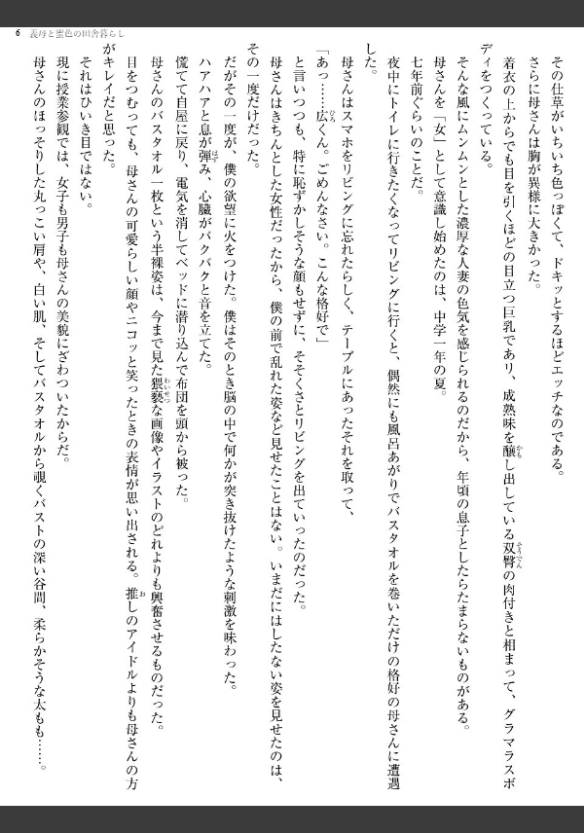 6 義母と蜜色の田舎暮らし
その仕草がいちいち色っぽくて、ドキッとするほどエッチなのである。
さらに母さんは胸が異様に大きかった。
着衣の上からでも目を引くほどの目立つ巨乳であり、成熟味を醸し出している双臀の肉付きと相まって、グラマラスボ
ディをつくっている。
そんな風にムンムンとした濃厚な人妻の色気を感じられるのだから、年頃の息子としたらたまらないものがある。
母さんを「女」として意識し始めたのは、中学一年の夏。
七年前ぐらいのことだ。
夜中にトイレに行きたくなってリビングに行くと、偶然にも風呂あがりでバスタオルを巻いただけの格好の母さんに遭遇
した。
母さんはスマホをリビングに忘れたらしく、テーブルにあったそれを取って、
「あっ……広くん。ごめんなさい。こんな格好で」
と言いつつも、特に恥ずかしそうな顔もせずに、そそくさとリビングを出ていったのだった。
母さんはきちんとした女性だったから、僕の前で乱れた姿など見せたことはない。いまだにはしたない姿を見せたのは、
その一度だけだった。
だがその一度が、僕の欲望に火をつけた。僕はそのとき脳の中で何かが突き抜けたような刺激を味わった。
ハアハアと息が弾み、心臓がバクバクと音を立てた。
慌てて自屋に戻り、電気を消してベッドに潜り込んで布団を頭から被った。
母さんのバスタオル一枚という半裸姿は、今まで見た猥褻な画像やイラストのどれよりも興奮させるものだった。
目をつむっても、母さんの可愛らしい顔やニコッと笑ったときの表情が思い出される。推しのアイドルよりも母さんの方
がキレイだと思った。
それはひいき目ではない。
現に授業参観では、女子も男子も母さんの美貌にざわついたからだ。
母さんのほっそりした丸っこい肩や、白い肌、そしてバスタオルから覗くバストの深い谷間、柔らかそうな太もも……。